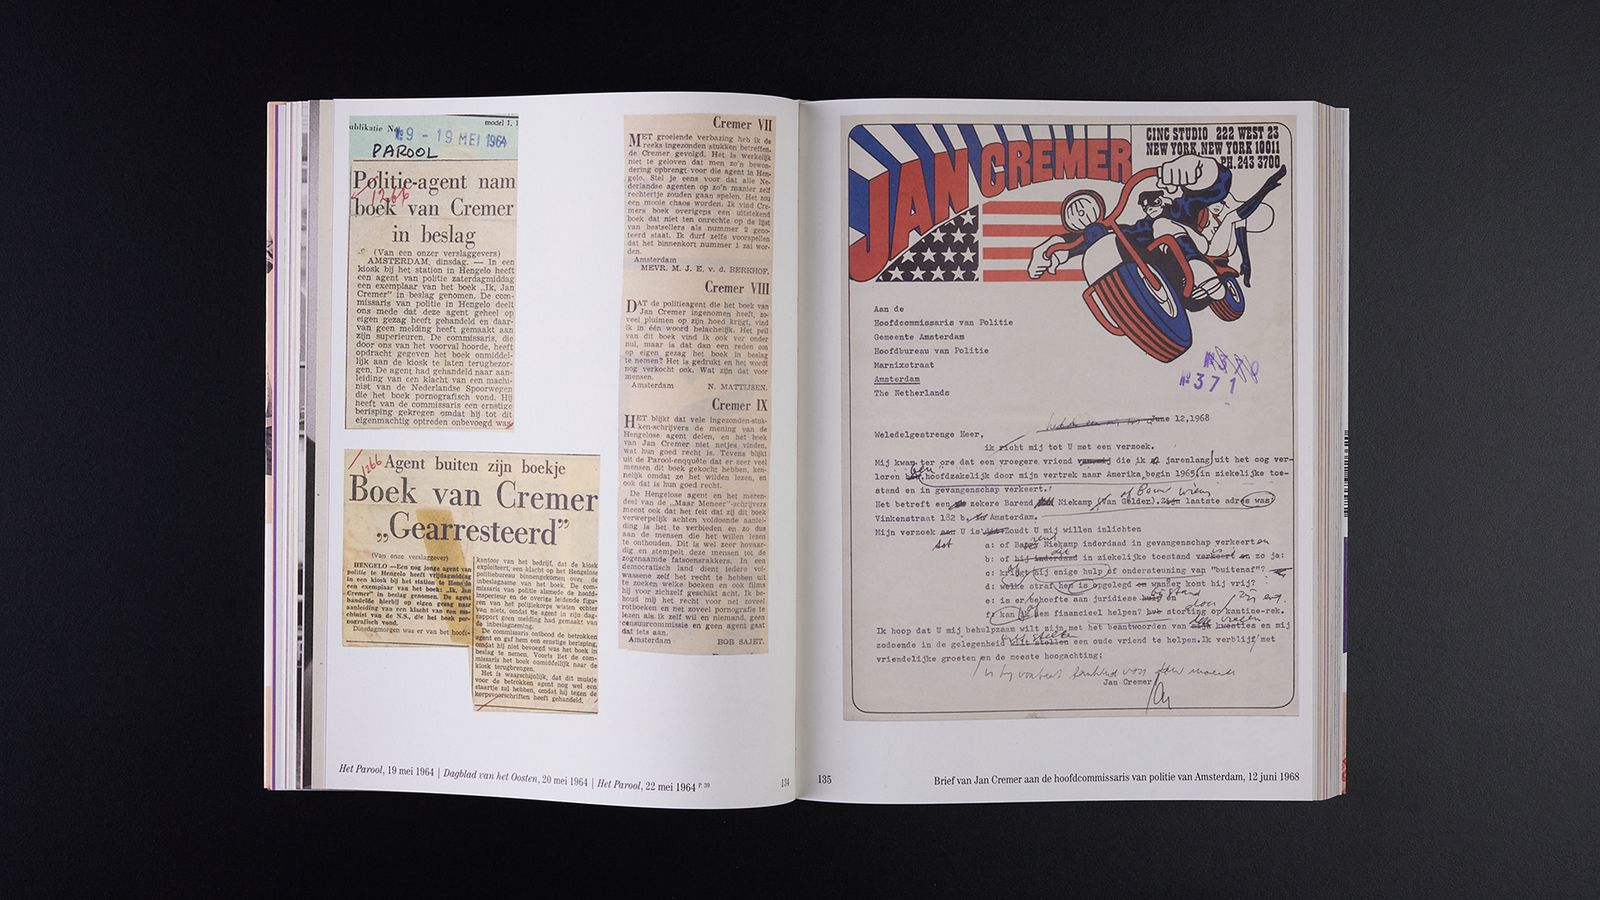 ublikatie No
model 1. 1
№9 - 19 MEI 1964
PAROOL
Politie-agent nam
1266
boek van Cremer
in beslag
(Van een onzer verslaggevers)
AMSTERDAM, dinsdag. — In een
kiosk bij het station in Hengelo heeft
een agent van politie zaterdagmiddag
een exemplaar van het boek „Ik, Jan
Cremer” in beslag genomen. De com-
missaris van politie in Hengelo deelt
ons mede dat deze agent geheel op
eigen gezag heeft gehandeld en daar-
van geen melding heeft gemaakt aan
zijn superieuren. De commissaris, die
door ons van het voorval hoorde, heeft
opdracht gegeven het boek onmiddel-
lijk aan de kiosk te laten terugbezor-
gen. De agent had gehandeld naar aan-
leiding van een klacht van een machi-
nist van de Nederlandse Spoorwegen
die het boek pornografisch vond. Hij
heeft van de commissaris een ernstige
berisping gekregen omdat hij tot dit
eigenmachtig optreden onbevoegd was
1266
Agent buiten zijn boekje
Boek van Cremer
„Gearresteerd”
(Van onze verslaggever)
HENGELO —Een nog jonge agent van
politie te Hengelo heeft vrijdagmiddag
in een kiosk bij het station te Hengelo
een exemplaar van het boek: „Ik, Jan
Cremer” in beslag genomen. De agent
handelde hierbij op eigen gezag naar
aanleiding van een klacht van een ma-
chinist van de N.S., die het boek por-
nografisch vond.
Dinsdagmorgen was er van het hoofd-
kantoor van het bedrijf, dat de kiosk
exploiteert, een klacht op het Hengelose
politiebureau binnengekomen over de
inbeslagname van het boek. De com-
missaris van politie alsmede de hoofd-
inspecteur en de overige leidende figu-
ren van het politiekorps wisten echter
van niets, omdat de agent in zijn dag-
rapport geen melding had gemaakt van
de inbeslagneming.
De commissaris ontbood de betrokken
agent en gaf hem een ernstige berisping,
omdat hij niet bevoegd was het boek in
beslag te nemen. Voorts liet de com-
missaris het boek onmiddellijk naar de
kiosk terugbrengen.
Het is waarschijnlijk, dat dit muisje
voor de betrokken agent nog wel een
staartje zal hebben, omdat hij tegen de
korpsvoorschriften heeft gehandeld.
Cremer VII
MET groeiende verbazing heb ik de
reeks ingezonden stukken betreffen-
de Cremer gevolgd. Het is werkelijk
niet te geloven dat men zo'n bewon-
dering opbrengt voor die agent in Hen-
gelo. Stel je eens voor dat alle Ne-
derlandse agenten op zo'n manier zelf
rechtertje zouden gaan spelen. Het zou
een mooie chaos worden. Ik vind Cre-
mers boek overigens een uitstekend
boek dat niet ten onrechte op de lijst
van bestsellers als nummer 2 geno-
teerd staat. Ik durf zelfs voorspellen
dat het binnenkort nummer 1 zal wor-
den.
Amsterdam
MEVR. M. J. E. v. d. BERKHOF.
Cremer VIII
DAT de politieagent die het boek van
Jan Cremer ingenomen heeft, zo-
veel pluimen op zijn hoed krijgt, vind
ik in één woord belachelijk. Het peil
van dit boek vind ik ook ver onder
nul, maar is dat dan een reden om
op eigen gezag het boek in beslag
te nemen? Het is gedrukt en het wordt
nog verkocht ook. Wat zijn dat voor
mensen.
Amsterdam N. MATTIJSEN.
Cremer IX
HET blijkt dat vele ingezonden-stuk-
ken-schrijvers de mening van de
Hengelose agent delen, en het boek
van Jan Cremer niet netjes vinden,
wat hun goed recht is. Tevens blijkt
uit de Parool-enquête dat er zeer veel
mensen dit boek gekocht hebben, ken-
nelijk omdat ze het wilden lezen, en
ook dat is hun goed recht.
De Hengelose agent en het meren-
deel van de „Maar Meneer”-schrijvers
meent ook dat het feit dat zij dit boek
verwerpelijk achten voldoende aanlei-
ding is het te verbieden en zo dus
aan de mensen die het willen lezen
te onthouden. Dit is wel zeer hovaar-
dig en stempelt deze mensen tot de
zogenaamde fatsoensrakkers. In een
democratisch land dient iedere vol-
wassene zelf het recht te hebben uit
te zoeken welke boeken en ook films
hij voor zichzelf geschikt acht. Ik be-
houd mij het recht voor net zoveel
rotboeken en net zoveel pornografie te
lezen als ik zelf wil en niemand, geen
censuurcommissie en geen agent gaat
dat iets aan.
Amsterdam BOB SAJET.
Het Parool, 19 mei 1964 | Dagblad van het Oosten, 20 mei 1964 | Het Parool, 22 mei 1964 P. 39
134
JAN CREMER
CINC STUDIO 222 WEST 23
NEW YORK, NEW YORK 10011
PH. 243 3700
Aan de
Hoofdcommissaris van Politie
Gemeente Amsterdam
Hoofdbureau van Politie
Marnixstraat
Amsterdam
The Netherlands
№371
June 12,1968
Weledelgestrenge Heer,
ik richt mij tot U met een verzoek.
Mij kwam ter ore dat een vroegere vriend die ik jarenlang uit het oog ver-
loren ben hoofdzakelijk door mijn vertrek naar Amerika begin 1965, in ziekelijke toe-
stand en in gevangenschap verkeert.
Het betreft een zekere Barend Niekamp (Van Gelder). Zijn laatste adres was
Vinkenstraat 182 b. Amsterdam.
Mijn verzoek aan U is: Zoudt U mij willen inlichten
a: of Barend Niekamp inderdaad in gevangenschap verkeert en
b: of hij inderdaad in ziekelijke toestand verkeert en zo ja:
c: krijgt hij enige hulp of ondersteuning van "buitenaf"?
d: welke straf hem is opgelegd en wanneer komt hij vrij?
e: is er behoefte aan juridiese bijstand en
f: kan ik hem financieel helpen? door storting op kantine-rek.
Ik hoop dat U mij behulpzaam wilt zijn met het beantwoorden van kwesties en mij
zodoende in de gelegenheid wilt stellen een oude vriend te helpen. Ik verblijf met
vriendelijke groeten en de meeste hoogachting:
Jan Cremer
135
Brief van Jan Cremer aan de hoofdcommissaris van politie van Amsterdam, 12 juni 1968